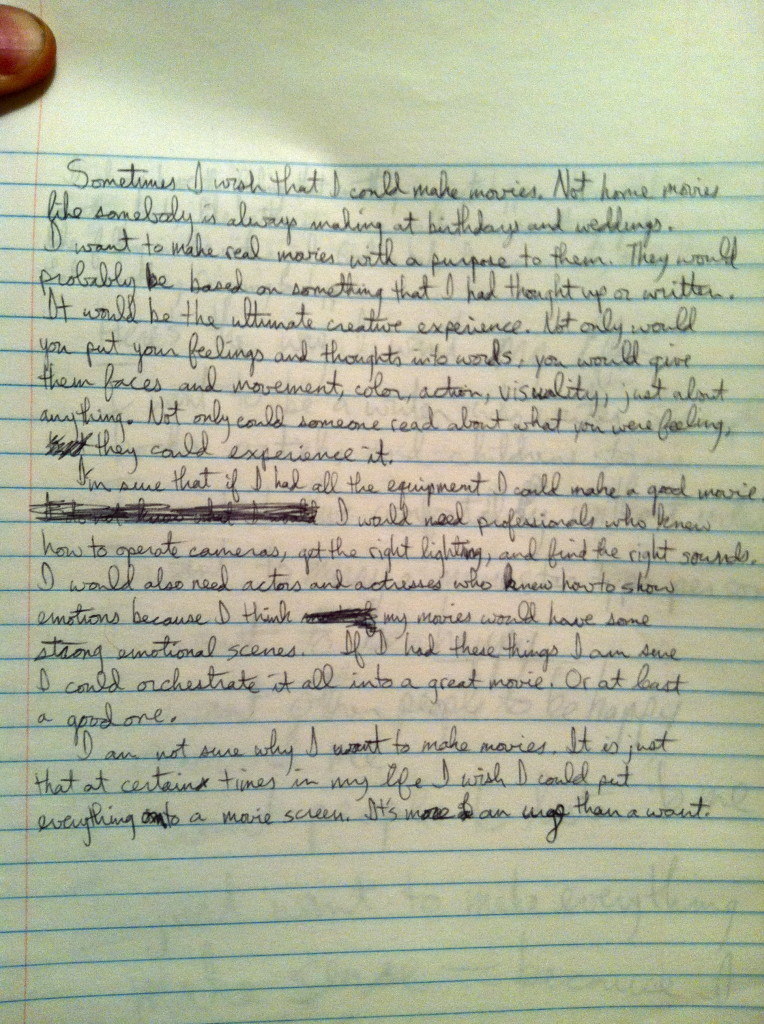 Sometimes I wish that I could make movies. Not home movies
like somebody is always making at birthdays and weddings.
I want to make real movies with a purpose to them. They would
probably be based on something that I had thought up or written.
It would be the ultimate creative experience. Not only would
you put your feelings and thoughts into words, you would give
them faces and movement, color, action, visuality, just about
anything. Not only could someone read about what you were feeling,
they could experience it.
I'm sure that if I had all the equipment I could make a good movie.
I would need professionals who knew
how to operate cameras, get the right lighting, and find the right sounds.
I would also need actors and actresses who knew how to show
emotions because I think my movies would have some
strong emotional scenes. If I had these things I am sure
I could orchestrate it all into a great movie. Or at least
a good one.
I am not sure why I want to make movies. It is just
that at certain times in my life I wish I could put
everything onto a movie screen. It's more of an urge than a want.